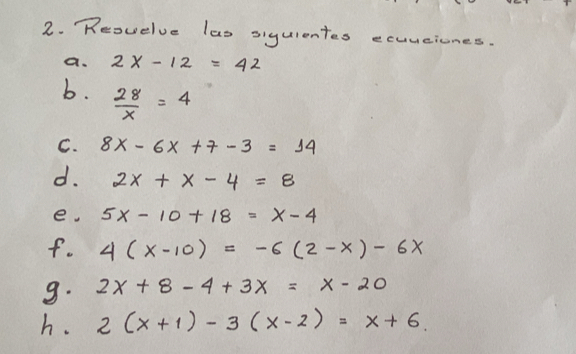 2. Resuelve las siguientes ecuaciones.
a. 2x - 12 = 42
b. 28/x = 4
c. 8x - 6x + 7 - 3 = 14
d. 2x + x - 4 = 8
e. 5x - 10 + 18 = x - 4
f. 4 (x - 10) = -6 (2 - x) - 6x
g. 2x + 8 - 4 + 3x = x - 20
h. 2 (x + 1) - 3 (x - 2) = x + 6.